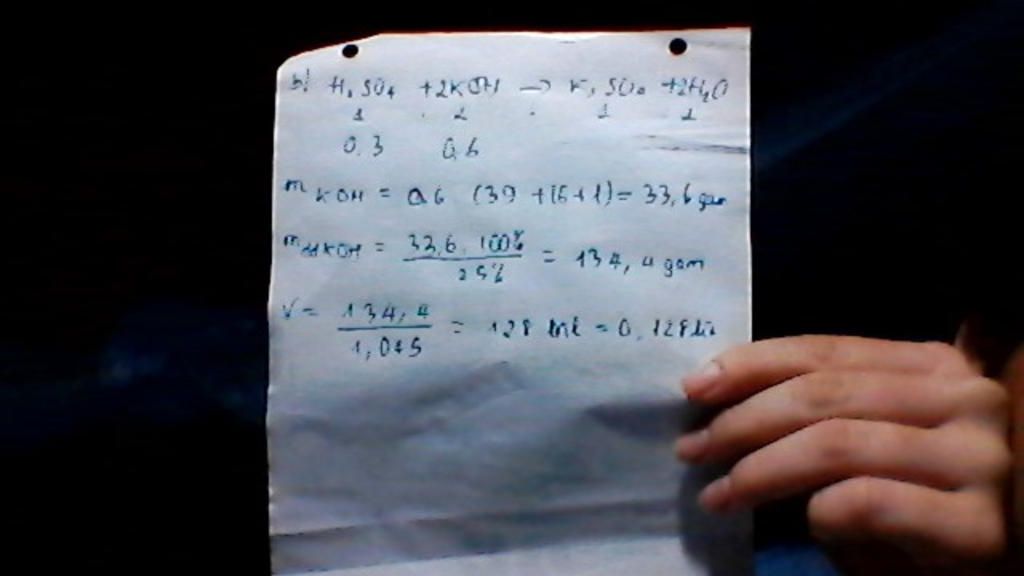 b) H₂SO₄ + 2KOH → K₂SO₄ + 2H₂O
1 2 1 1
0,3 0,6
m KOH = 0,6 (39 + 16 + 1) = 33,6 gam
m ddKOH = 33,6 . 100% / 25% = 134,4 gam
V = 134,4 / 1,045 = 128 ml = 0,128 lít